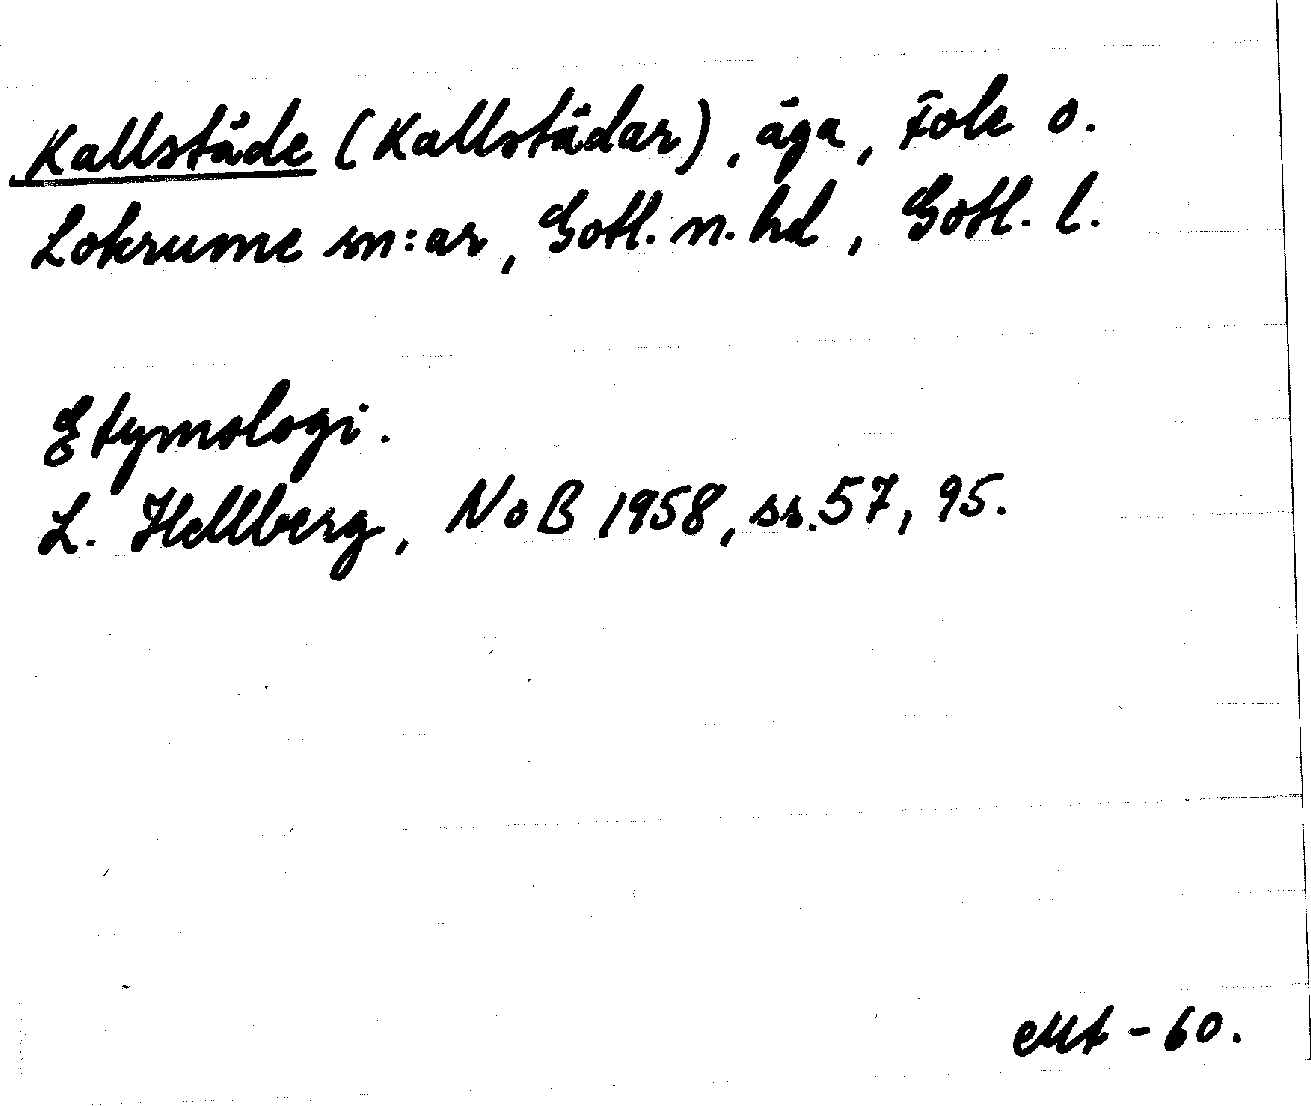 Kallstäde (Kallstädar), äga, Fole o.
Lokrume sn:ar, Gotl. n. hd, Gotl. l.
Etymologi.
L. Hellberg, NoB 1958, ss. 57, 95.
-60.